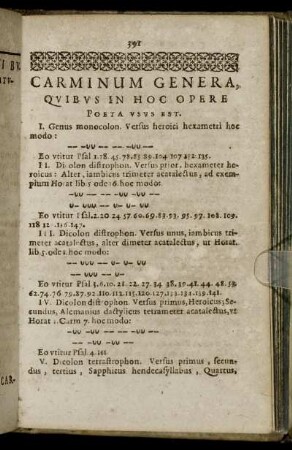 391
CARMINUM GENERA,
QVIBVS IN HOC OPERE
POETA VSVS EST.
I. Genus monocolon. Versus heroici hexametri hoc
modo:
Eo vtitur Psal 1.18.45.78.83 89.104.107 132.135.
II. Dicolon distrophon. Versus prior, hexameter he-
roicus: Alter, iambicus trimeter acatalectus, ad exem-
plum Horat lib 5 ode: 6 hoc modo:
Eo vtitur Psal.2.20 24 57 60.69.81 93. 95. 97. 108. 109.
118
III. Dicolon distrophon. Versus unus, iambicus tri-
meter acatalectus, alter dimeter acatalectus, ut Horat.
lib 5. ode: hoc modo:
Eo vtitur Psal 3.6.10. 21. 22. 27. 34 38. 41. 44. 48. 53.
62.74. 76 79.87.92
IV. Dicolon distrophon. Versus primus, Heroicus; Se-
cundus, Alcmanius dactylicus tetrameter acatalectus, vt
Horat . Carm 7. hoc modo:
Eo vtitur Psal. 4.
V. Dicolon tetrastrophon. Versus primus, secun-
dus, tertius, Sapphicus hendecasyllabus, Quartus,
CAR-